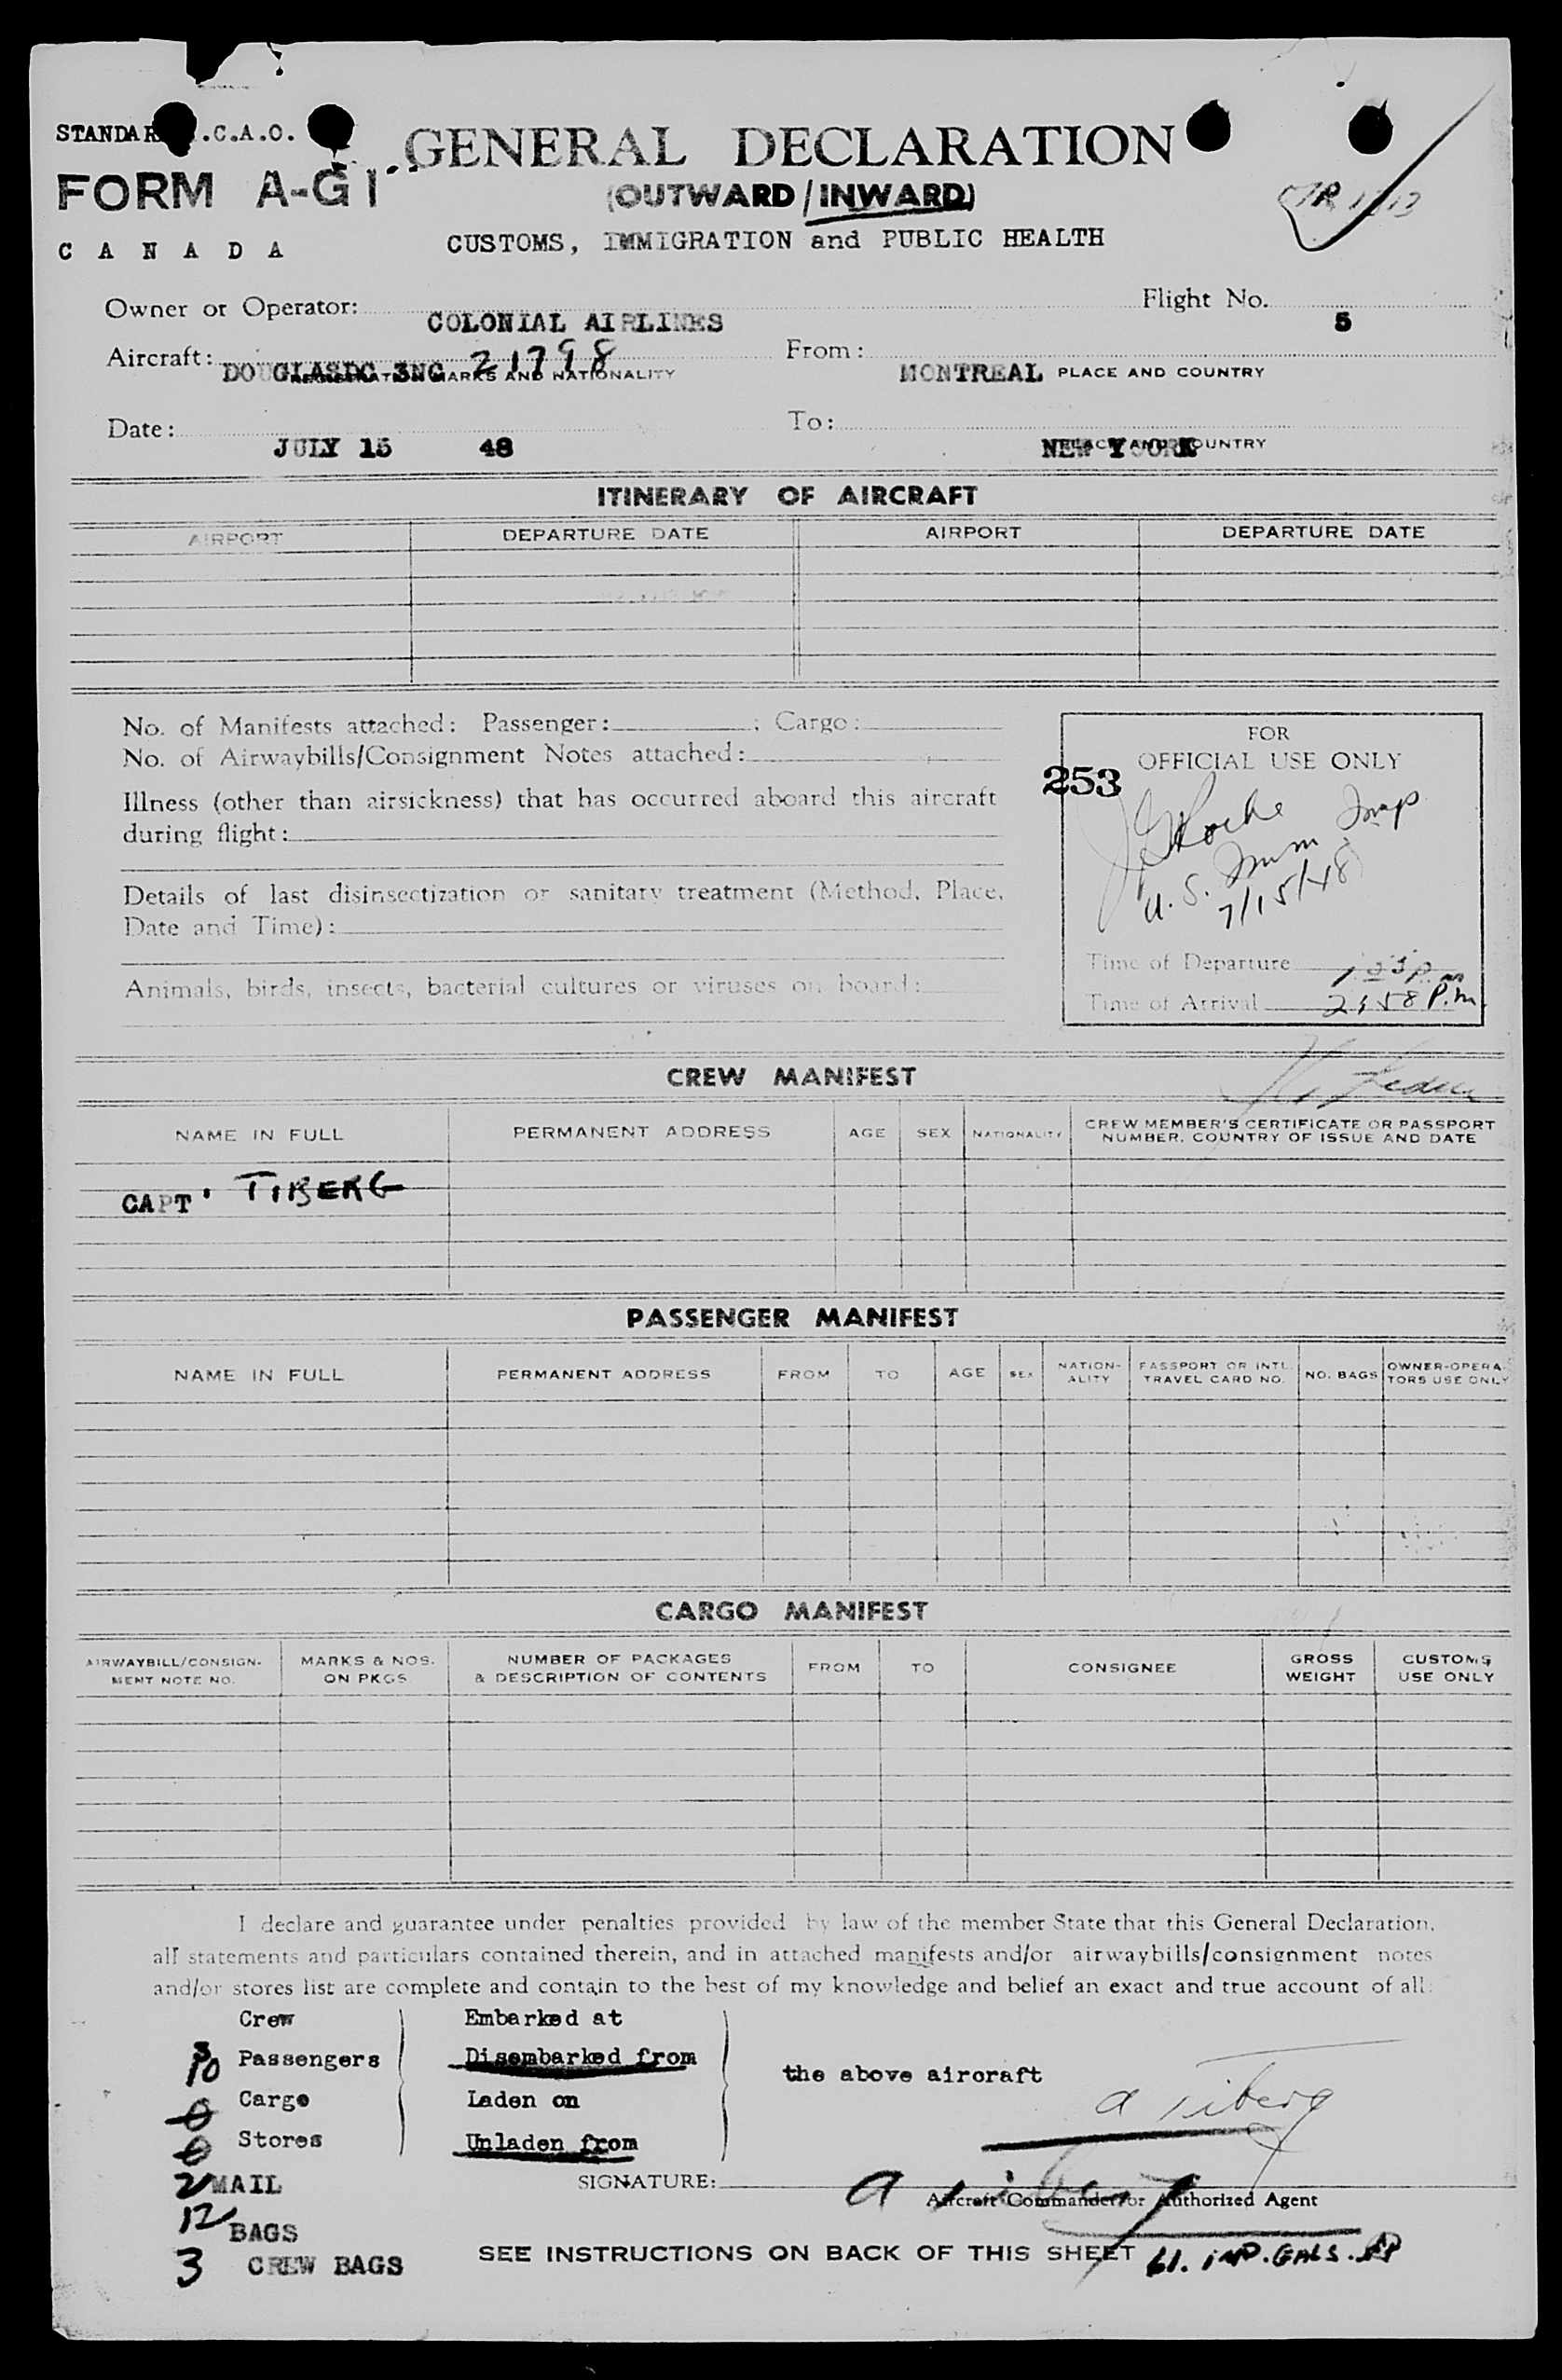 STANDAR .C.A.O.
FORM A-G1
CANADA
GENERAL DECLARATION
(OUTWARD/INWARD)
CUSTOMS, IMMIGRATION and PUBLIC HEALTH
Owner or Operator: COLONIAL AIRLINES Flight No. 5
Aircraft: DOUGLASDC 3NC 21798 From: MONTREAL PLACE AND COUNTRY
MARKS AND NATIONALITY
Date: JULY 15 48 To: NEW YOORK
ITINERARY OF AIRCRAFT
AIRPORT DEPARTURE DATE AIRPORT DEPARTURE DATE
No. of Manifests attached: Passenger: ; Cargo:
No. of Airwaybills/Consignment Notes attached:
Illness (other than airsickness) that has occurred aboard this aircraft
during flight:
Details of last disinsectization or sanitary treatment (Method, Place,
Date and Time):
Animals, birds, insects, bacterial cultures or viruses on board:
FOR
OFFICIAL USE ONLY
253
Roche Insp
U.S. Imm
7/15/48
Time of Departure
Time of Arrival 2:58 P.m.
CREW MANIFEST
NAME IN FULL PERMANENT ADDRESS AGE SEX NATIONALITY CREW MEMBER'S CERTIFICATE OR PASSPORT
NUMBER, COUNTRY OF ISSUE AND DATE
CAPT' TIBERG
PASSENGER MANIFEST
NAME IN FULL PERMANENT ADDRESS FROM TO AGE SEX NATION-
ALITY PASSPORT OR INTL.
TRAVEL CARD NO. NO. BAGS OWNER-OPERA-
TORS USE ONLY
CARGO MANIFEST
AIRWAYBILL/CONSIGN-
MENT NOTE NO. MARKS & NOS.
ON PKGS NUMBER OF PACKAGES
& DESCRIPTION OF CONTENTS FROM TO CONSIGNEE GROSS
WEIGHT CUSTOMS
USE ONLY
I declare and guarantee under penalties provided by law of the member State that this General Declaration,
all statements and particulars contained therein, and in attached manifests and/or airwaybills/consignment notes
and/or stores list are complete and contain to the best of my knowledge and belief an exact and true account of all:
3 Crew Embarked at
10 Passengers Disembarked from
the above aircraft
0 Cargo Laden on
0 Stores Unladen from
A Tiberg
2 MAIL
SIGNATURE: A Tiberg
Aircraft Commander or Authorized Agent
12 BAGS
3 CREW BAGS
SEE INSTRUCTIONS ON BACK OF THIS SHEET 61. IMP. GALS.